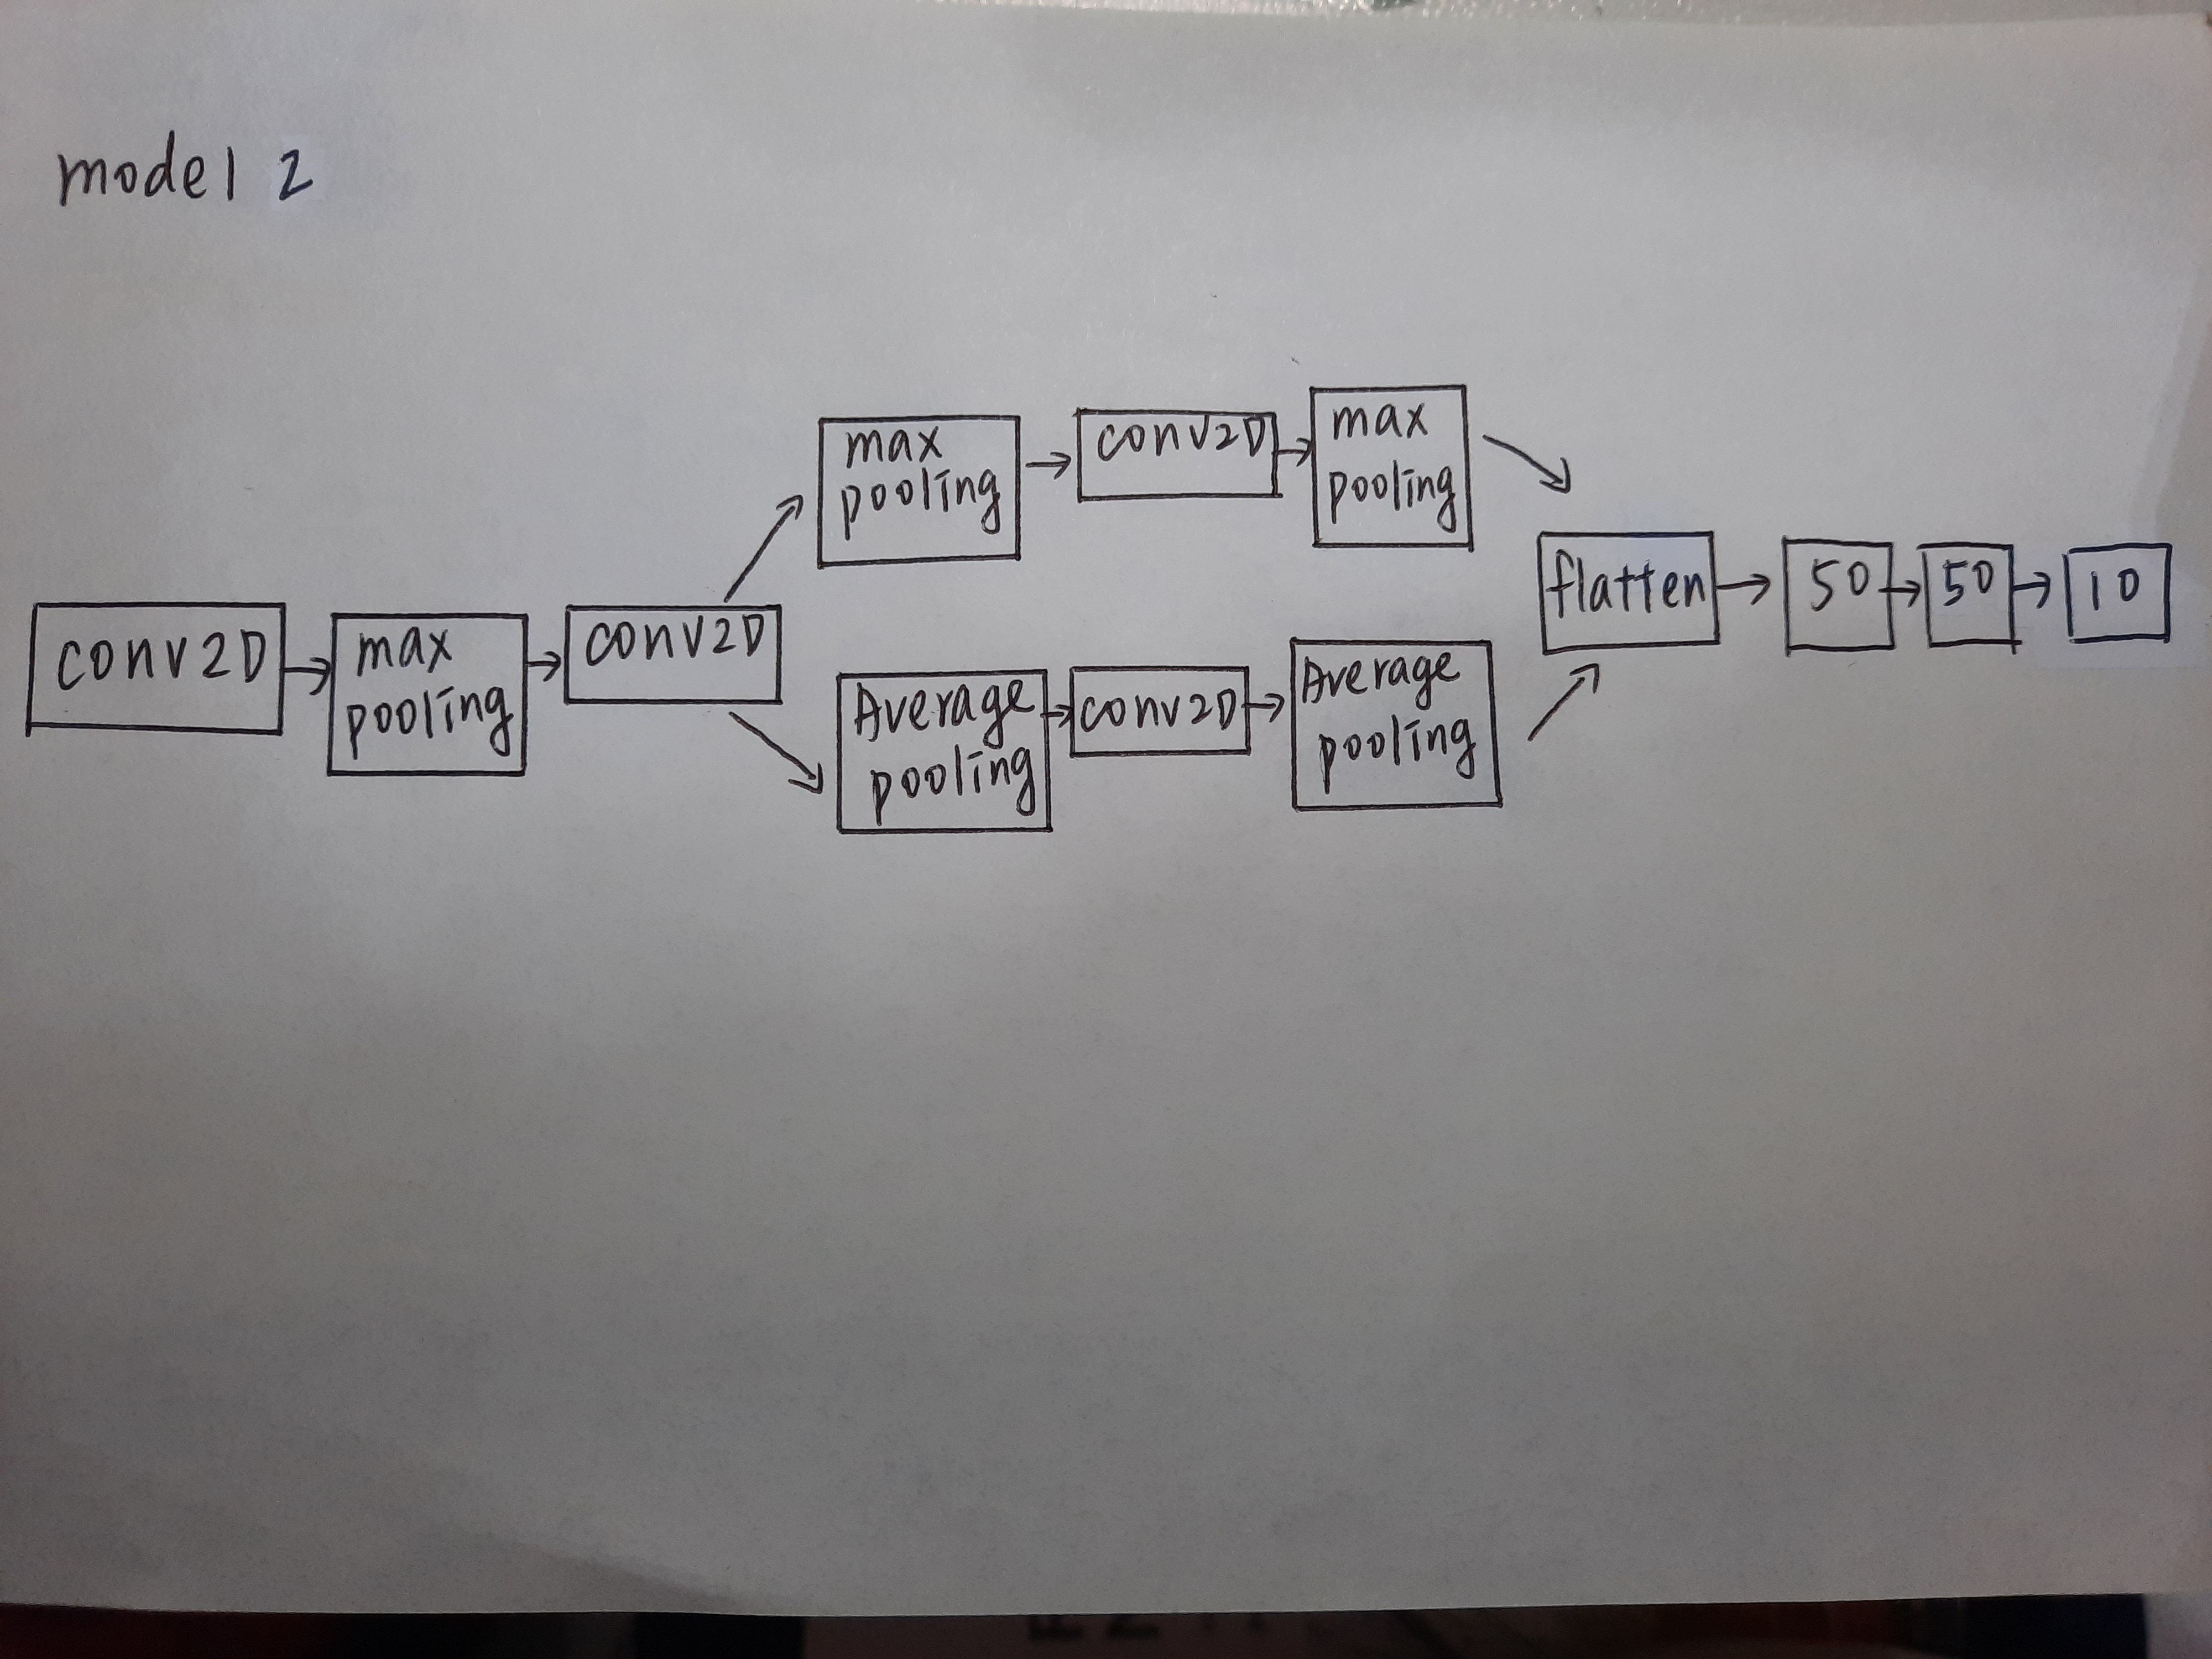 model 2
conv2D
max
pooling
conv2D
max
pooling
conv2D
max
pooling
Average
pooling
conv2D
Average
pooling
flatten
50
50
10